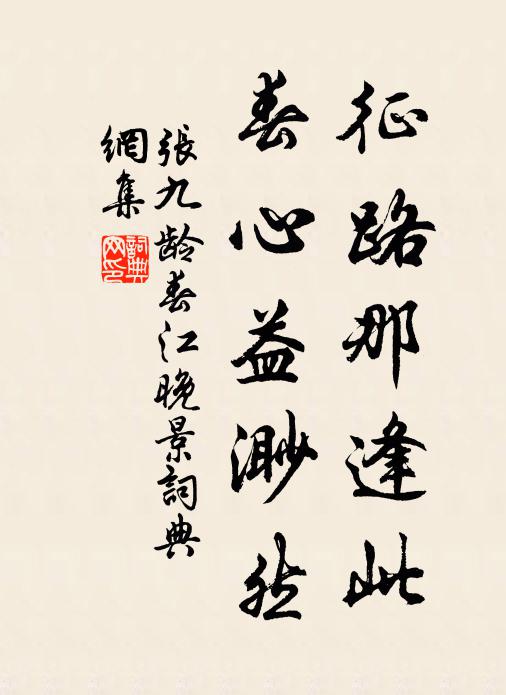 征路那逢此
春心益渺然
張九龄春江晚景詞典
網集
詞典
网印